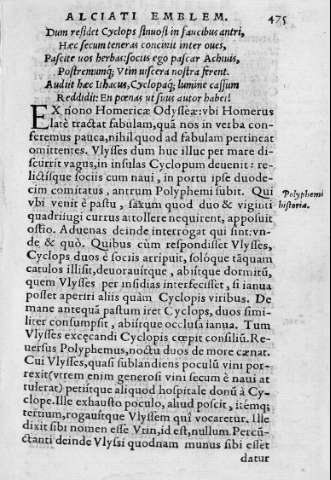 ALCIATI EMBLEM. 475
Dum residet Cyclops sinuosi in faucibus antri,
Hæc secum teneras concinit inter oues,
Pascite vos herbas: socius ego pascar Achiuis,
Postremumq́; Vtim viscera nostra ferent.
Audiit hæc Ithacus, Cyclopaq́; lumine cassum
Reddidit: En pœnas ut suus autor habet!
EX nono Homericæ Odysseæ: vbi Homerus
latè tractat fabulam, quã nos in verba con-
feremus pauca, nihil quod ad fabulam pertineat
omittentes. Vlysses dum huc illuc per mare di-
scurrit vagus, in insulas Cyclopum deuenit: re-
lictísque sociis cum naui, in portu ipse duode-
cim comitatus, antrum Polyphemi subit. Qui
vbi venit è pastu, saxum quod duo & viginti
quadriiugi currus attollere nequirent, apposuit
ostio. Aduenas deinde interrogat qui sint: vn-
de & quò. Quibus cùm respondisset Vlysses,
Cyclops duos è sociis arripuit, solóque tãquam
catulos illisit, deuorauitque, abisque dormitũ,
quem Vlysses per insidias interfecisset, si ianua
posset aperiri aliis quàm Cyclopis viribus. De
mane antequã pastum iret Cyclops, duos simi-
liter consumpsit, abiitque occlusa ianua. Tum
Vlysses excęcandi Cyclopis cœpit consiliũ. Re-
uersus Polyphemus, noctu duos de more cænat.
Cui Vlysses, quasi sublandiens poculũ vini por-
rexit (vtrem enim generosi vini secum è naui at
tulerat) petiitque aliquod hospitale donũ à Cy-
clope. Ille exhausto poculo, aliud poscit, itémq;
tertium, rogauitque Vlyssem quî vocaretur. Ille
dixit sibi nomen esse Vtin, id est, nullum. Percũ-
ctanti deinde Vlyssi quodnam munus sibi esset
datur
Polyphemi
historia.